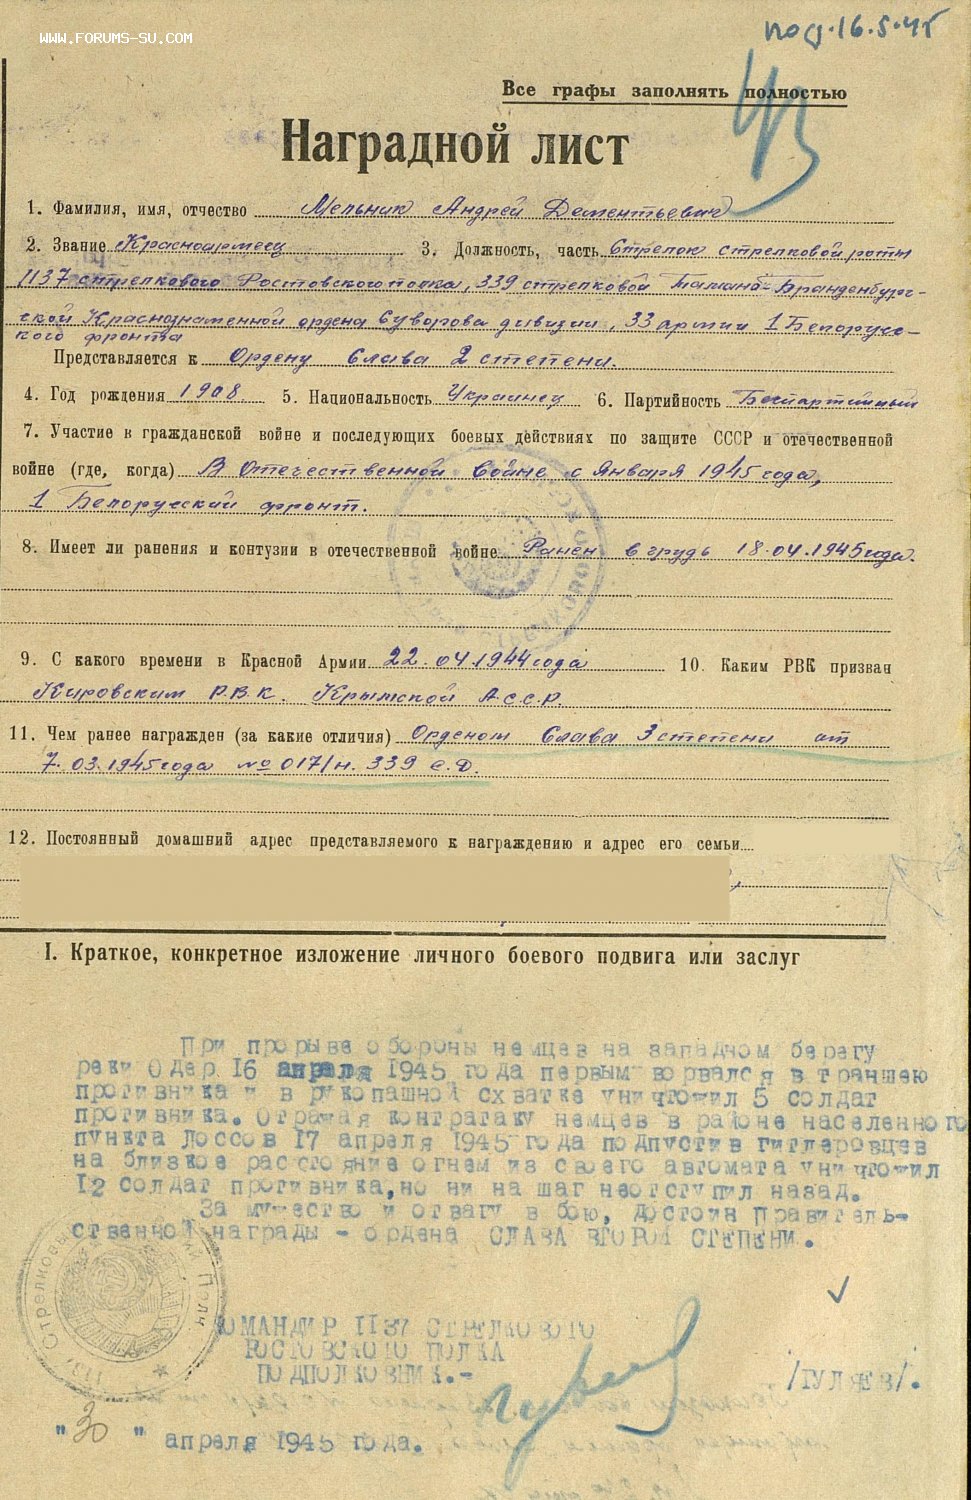 WWW.FORUMS-SU.COM
под. 16.5.45
Все графы заполнять полностью
Наградной лист
1. Фамилия, имя, отчество Мельник Андрей Дементьевич
2. Звание Красноармеец 3. Должность, часть Стрелок стрелковой роты
1137 стрелкового Ростовского полка, 339 стрелковой Тамано-Бранденбург-
ской Краснознаменной ордена Суворова дивизии, 33 армии 1 Белорусс-
кого фронта
Представляется к Ордену Слава 2 степени.
4. Год рождения 1908. 5. Национальность Украинец 6. Партийность Беспартийный
7. Участие в гражданской войне и последующих боевых действиях по защите СССР и отечественной
войне (где, когда) В Отечественной войне с января 1945 года,
1 Белорусский фронт.
8. Имеет ли ранения и контузии в отечественной войне Ранен в грудь 18.04.1945 года.
9. С какого времени в Красной Армии 22.04.1944 года 10. Каким РВК призван
Кировским Р.В.К. Крымской А.С.С.Р.
11. Чем ранее награжден (за какие отличия) Орденом Слава 3 степени от
7.03.1945 года № 017/н. 339 с.д.
12. Постоянный домашний адрес представляемого к награждению и адрес его семьи
I. Краткое, конкретное изложение личного боевого подвига или заслуг
При прорыве обороны немцев на западном берегу
реки Одер 16 апреля 1945 года первым ворвался в траншею
противника и в рукопашной схватке уничтожил 5 солдат
противника. Отражая контратаку немцев в районе населенного
пункта Лоссов 17 апреля 1945 года подпустив гитлеровцев
на близкое расстояние огнем из своего автомата уничтожил
12 солдат противника, но ни на шаг не отступил назад.
За мужество и отвагу в бою, достоин Правитель-
ственной награды - ордена СЛАВА ВТОРОЙ СТЕПЕНИ.
КОМАНДИР 1137 СТРЕЛКОВОГО
РОСТОВСКОГО ПОЛКА
ПОДПОЛКОВНИК.-
/ГУЛЯЕВ/.
"30" апреля 1945 года.